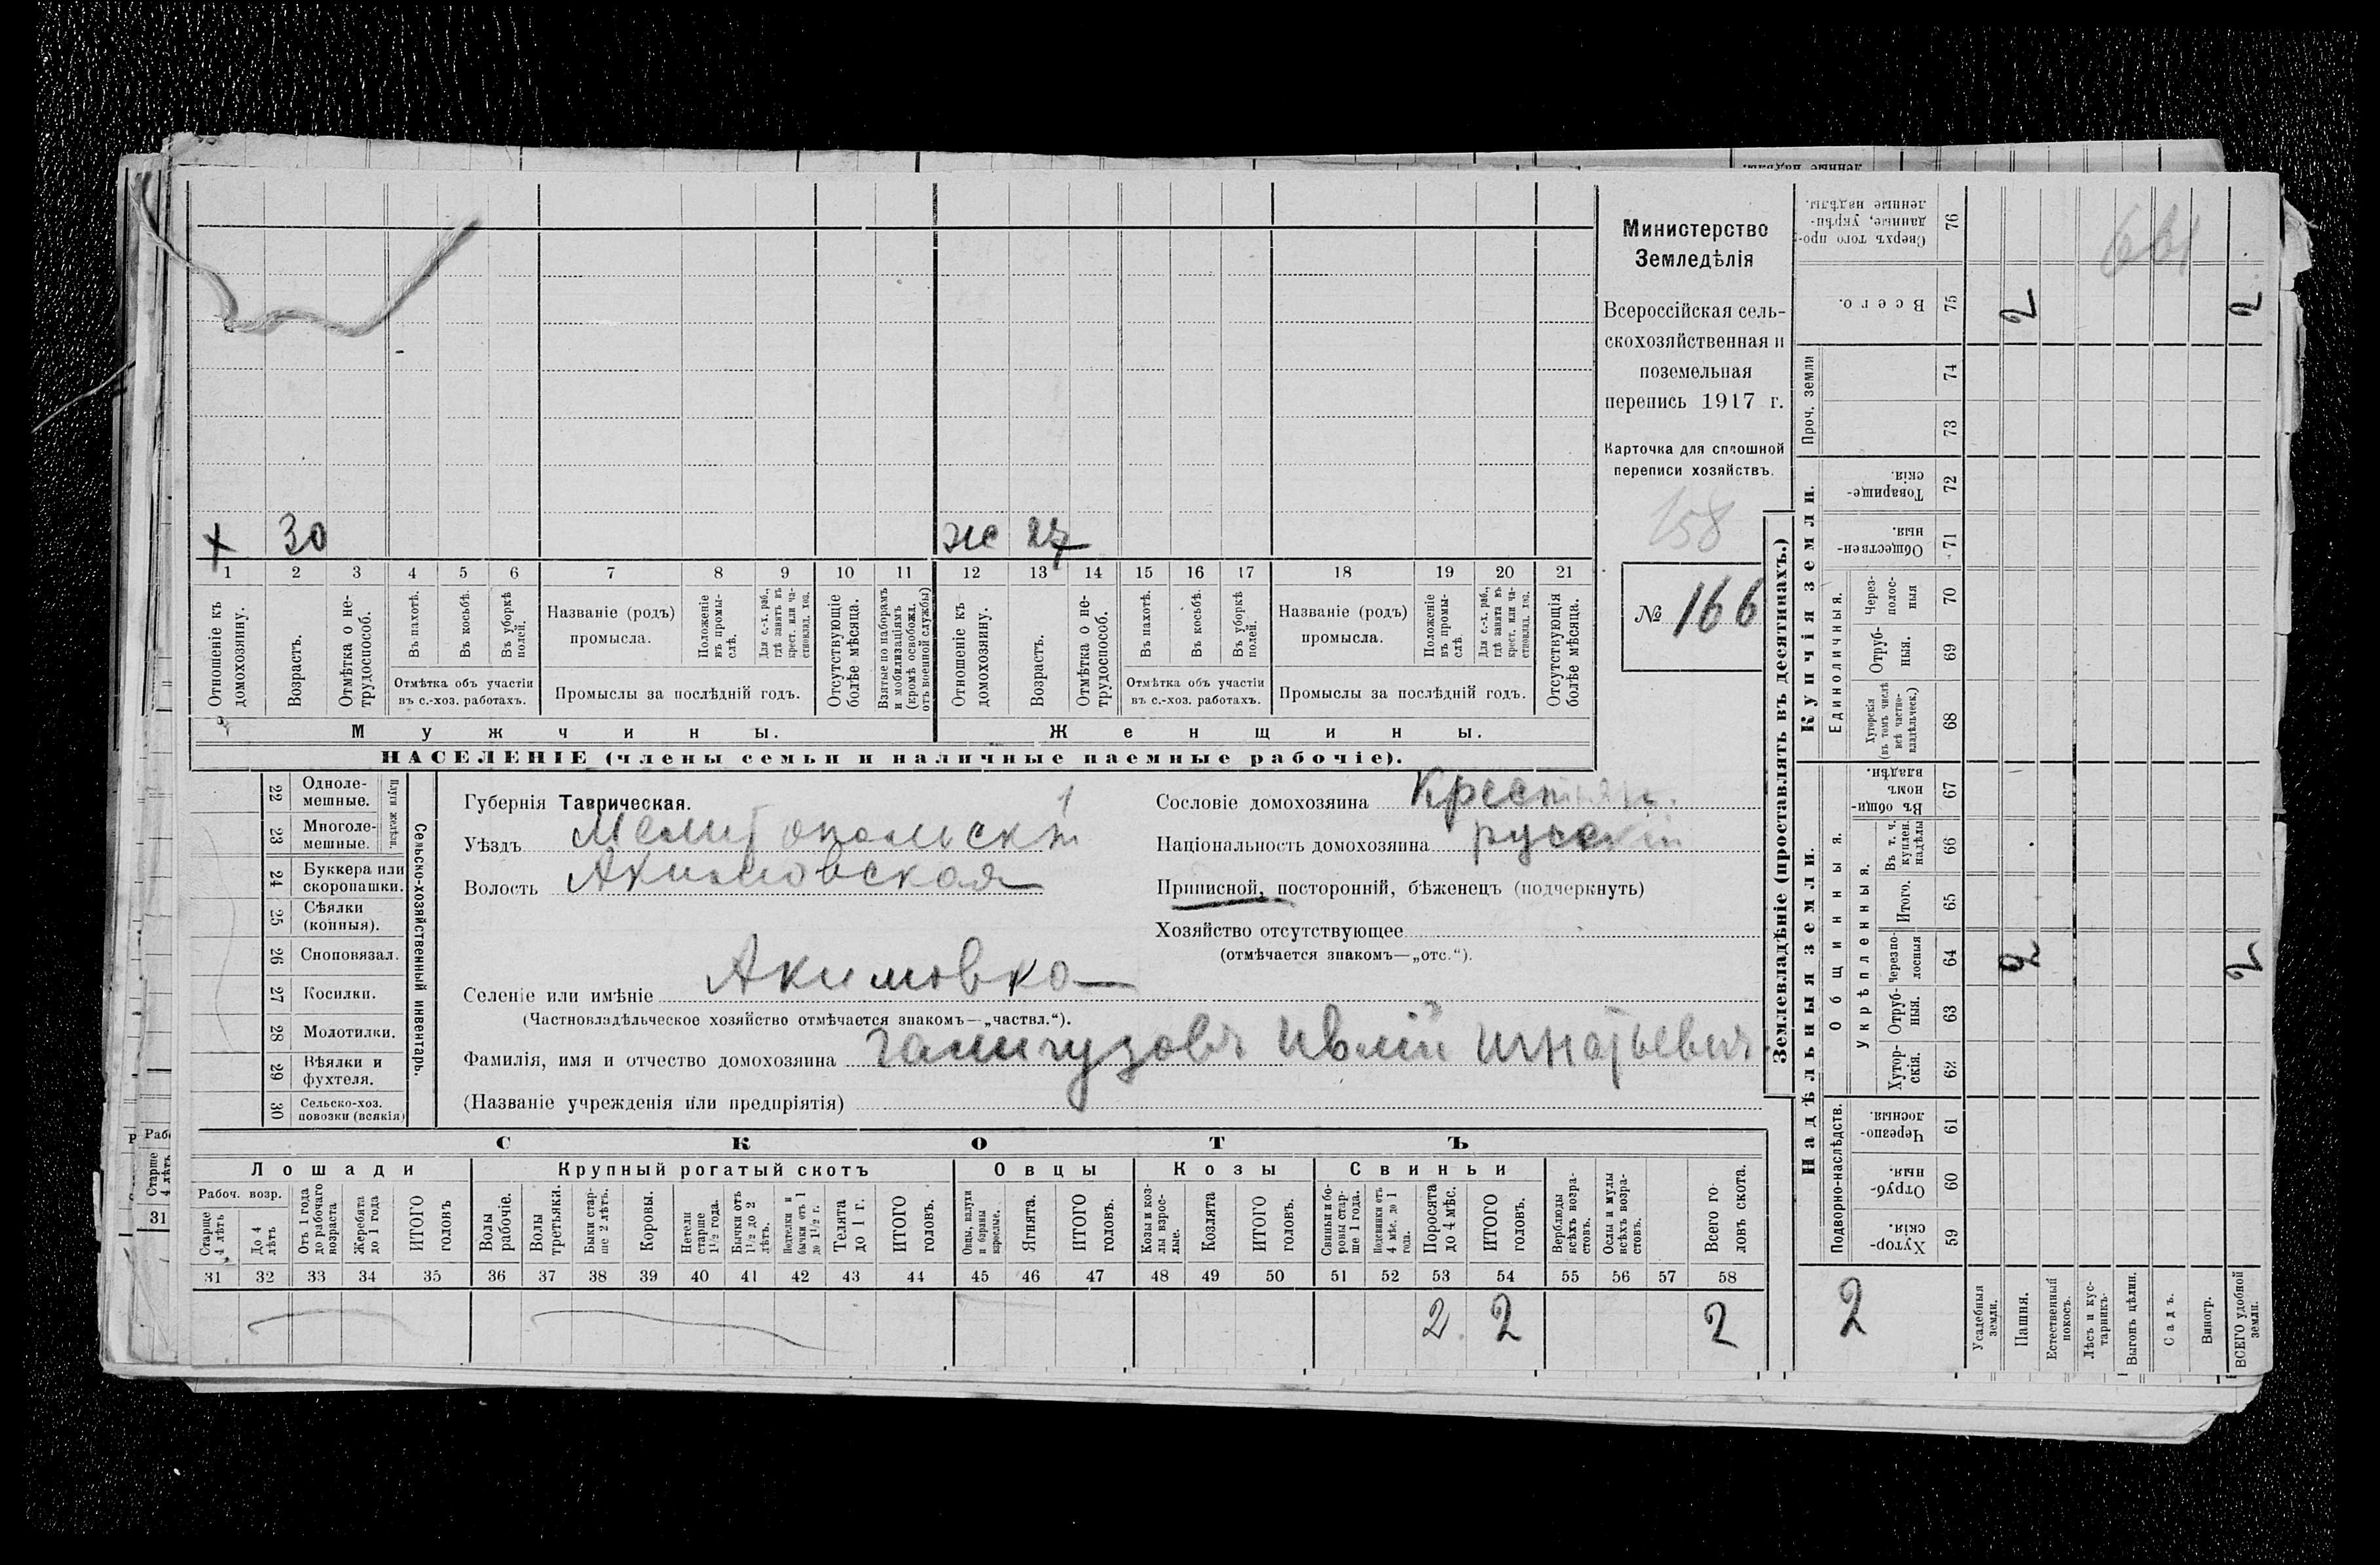 х 30 ж 27
1 2 3 4 5 6 7 8 9 10 11 12 13 14 15 16 17 18 19 20 21
Отношеніе къ домохозяину.
Возрастъ.
Отмѣтка о не-
трудоспособ.
Въ пахотѣ.
Въ косьбѣ.
Въ уборкѣ
полей.
Отмѣтка объ участіи
въ с.-хоз. работахъ.
Названіе (родъ)
промысла.
Положеніе
въ промы-
слѣ.
Для с.-х. раб.,
гдѣ занятъ въ
крест. или ча-
стновлад. хоз.
Промыслы за послѣдній годъ.
Отсутствующіе
болѣе мѣсяца.
Взятые по наборамъ
и мобилизаціямъ
(кромѣ освобожд.
отъ военной службы)
Отношеніе къ
домохозяину.
Возрастъ.
Отмѣтка о не-
трудоспособ.
Въ пахотѣ.
Въ косьбѣ.
Въ уборкѣ
полей.
Отмѣтка объ участіи
въ с.-хоз. работахъ.
Названіе (родъ)
промысла.
Положеніе
въ промы-
слѣ.
Для с.-х. раб.,
гдѣ занята въ
крест. или ча-
стновлад. хоз.
Промыслы за послѣдній годъ.
Отсутствующія
болѣе мѣсяца.
Мужчины.
Женщины.
НАСЕЛЕНІЕ (члены семьи и наличные наемные рабочіе).
Министерство
Земледѣлія
Всероссійская сель-
скохозяйственная и
поземельная
перепись 1917 г.
Карточка для сплошной
переписи хозяйствъ.
158
№ 166
22 Одноле-
мешные.
23 Многоле-
мешные.
Плуги желѣзн.
24 Буккера или
скоропашки.
25 Сѣялки
(конныя).
26 Сноповязал.
27 Косилки.
28 Молотилки.
29 Вѣялки и
фухтеля.
30 Сельско-хоз.
повозки (всякія)
Сельско-хозяйственный инвентарь.
Губернія Таврическая.
1
Уѣздъ Мелитопольскій
Волость Акимовская
Селеніе или имѣніе Акимовка
(Частновладѣльческое хозяйство отмѣчается знакомъ—„частвл.“).
Фамилія, имя и отчество домохозяина Игнатьевич
(Названіе учрежденія или предпріятія)
Сословіе домохозяина Крестьян.
Національность домохозяина русскій
Приписной, посторонній, бѣженецъ (подчеркнуть)
Хозяйство отсутствующее
(отмѣчается знакомъ—„отс.“).
СКОТЪ
Лошади
Рабоч. возр.
Старше
4 лѣтъ
До 4
лѣтъ
Отъ 1 года
до рабочаго
возраста
Жеребята
до 1 года
ИТОГО
головъ
Крупный рогатый скотъ
Волы
рабочіе.
Волы
третьяки.
Быки стар-
ше 2 лѣтъ.
Коровы.
Нетели
старше
1½ года.
Бычки отъ
1½ до 2
лѣтъ.
Подтелки и
бычки отъ 1
до 1½ г.
Телята
до 1 г.
ИТОГО
головъ.
Овцы
Овцы, валухи
и бараны
взрослые.
Ягнята.
ИТОГО
головъ.
Козы
Козы и коз-
лы взрос-
лые.
Козлята
ИТОГО
головъ.
Свиньи
Свиньи и бо-
ровы стар-
ше 1 года.
Подсвинки отъ
4 мѣс. до 1
года.
Поросята
до 4 мѣс.
ИТОГО
головъ.
Верблюды
всѣхъ возра-
стовъ.
Ослы и мулы
всѣхъ возра-
стовъ.
Всего го-
ловъ скота.
31 32 33 34 35 36 37 38 39 40 41 42 43 44 45 46 47 48 49 50 51 52 53 54 55 56 57 58
2 2 2
Землевладѣніе (проставлять въ десятинахъ.)
Надѣльныя земли.
Купчія земли.
Проч. земли
Подворно-наслѣдств.
Общинныя.
Укрѣпленныя.
Единоличныя.
Хутор-
скія. 59
Отруб-
ныя. 60
Черезпо-
лосныя. 61
Хутор-
скія. 62
Отруб-
ныя. 63
Черезпо-
лосныя 64
Итого. 65
Въ т. ч.
куплен.
надѣлы 66
Въ общи-
номъ
владѣн. 67
Хуторскія
(въ томъ числѣ
всѣ частно-
владѣльческ.) 68
Отруб-
ныя. 69
Через-
полос-
ныя 70
Обществен-
ныя. 71
Товарище-
скія. 72
73
74
Всего. 75
Сверхъ того про-
данные, укрѣп-
ленные надѣлы. 76
661
2 2
2 2
2
Усадебныя
земли.
Пашня.
Естественный
покосъ.
Лѣсъ и кус-
тарникъ.
Выгонъ цѣлин.
Садъ.
Виногр.
ВСЕГО удобной
земли.
Старше
4 лѣтъ
31